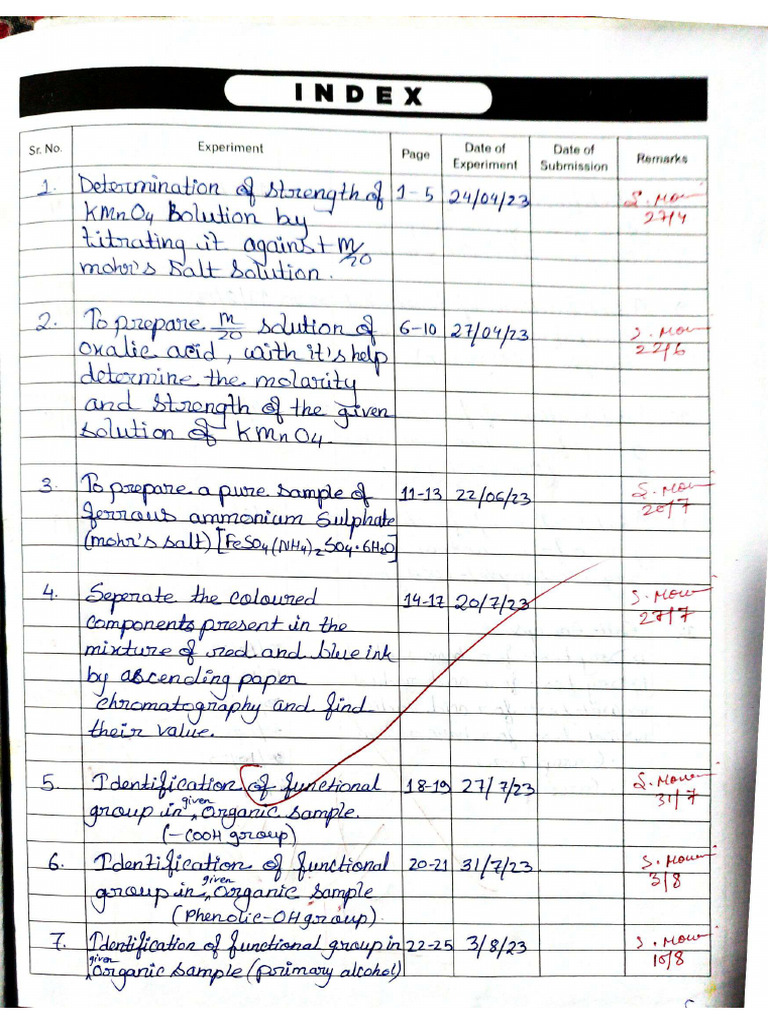 INDEX
Sr. No. Experiment Page Date of Experiment Date of Submission Remarks
1. Determination of strength of 1-5 24/04/23
KMnO4 solution by 27/4
titrating it against M/20
mohr's Salt Solution.
2. To prepare M/20 solution of 6-10 27/04/23
oxalic acid, with it's help 22/6
determine the molarity
and strength of the given
solution of KMnO4.
3. To prepare a pure sample of 11-13 22/06/23
ferrous ammonium Sulphate 20/7
(mohr's salt) [FeSO4(NH4)2SO4·6H2O]
4. Seperate the coloured 14-17 20/7/23
components present in the 27/7
mixture of red and blue ink
by ascending paper
chromatography and find
their value.
5. Identification of functional 18-19 27/7/23
group in given organic sample. 31/7
(-COOH group)
6. Identification of functional 20-21 31/7/23
group in given organic sample 3/8
(Phenolic-OH group).
7. Identification of functional group in 22-25 3/8/23
given organic sample (primary alcohol) 10/8